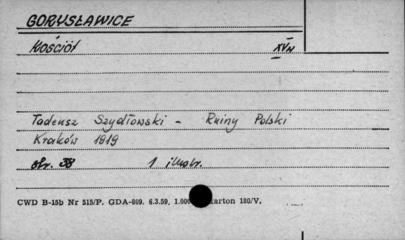 GORYSŁAWICE
Kościół XVw
Tadeusz Szydłowski - Ruiny Polski
Kraków 1919
str. 38 1 ilustr.
CWD B-15b Nr 515/P. GDA-809. 6.3.59. 1.000 karton 180/V.